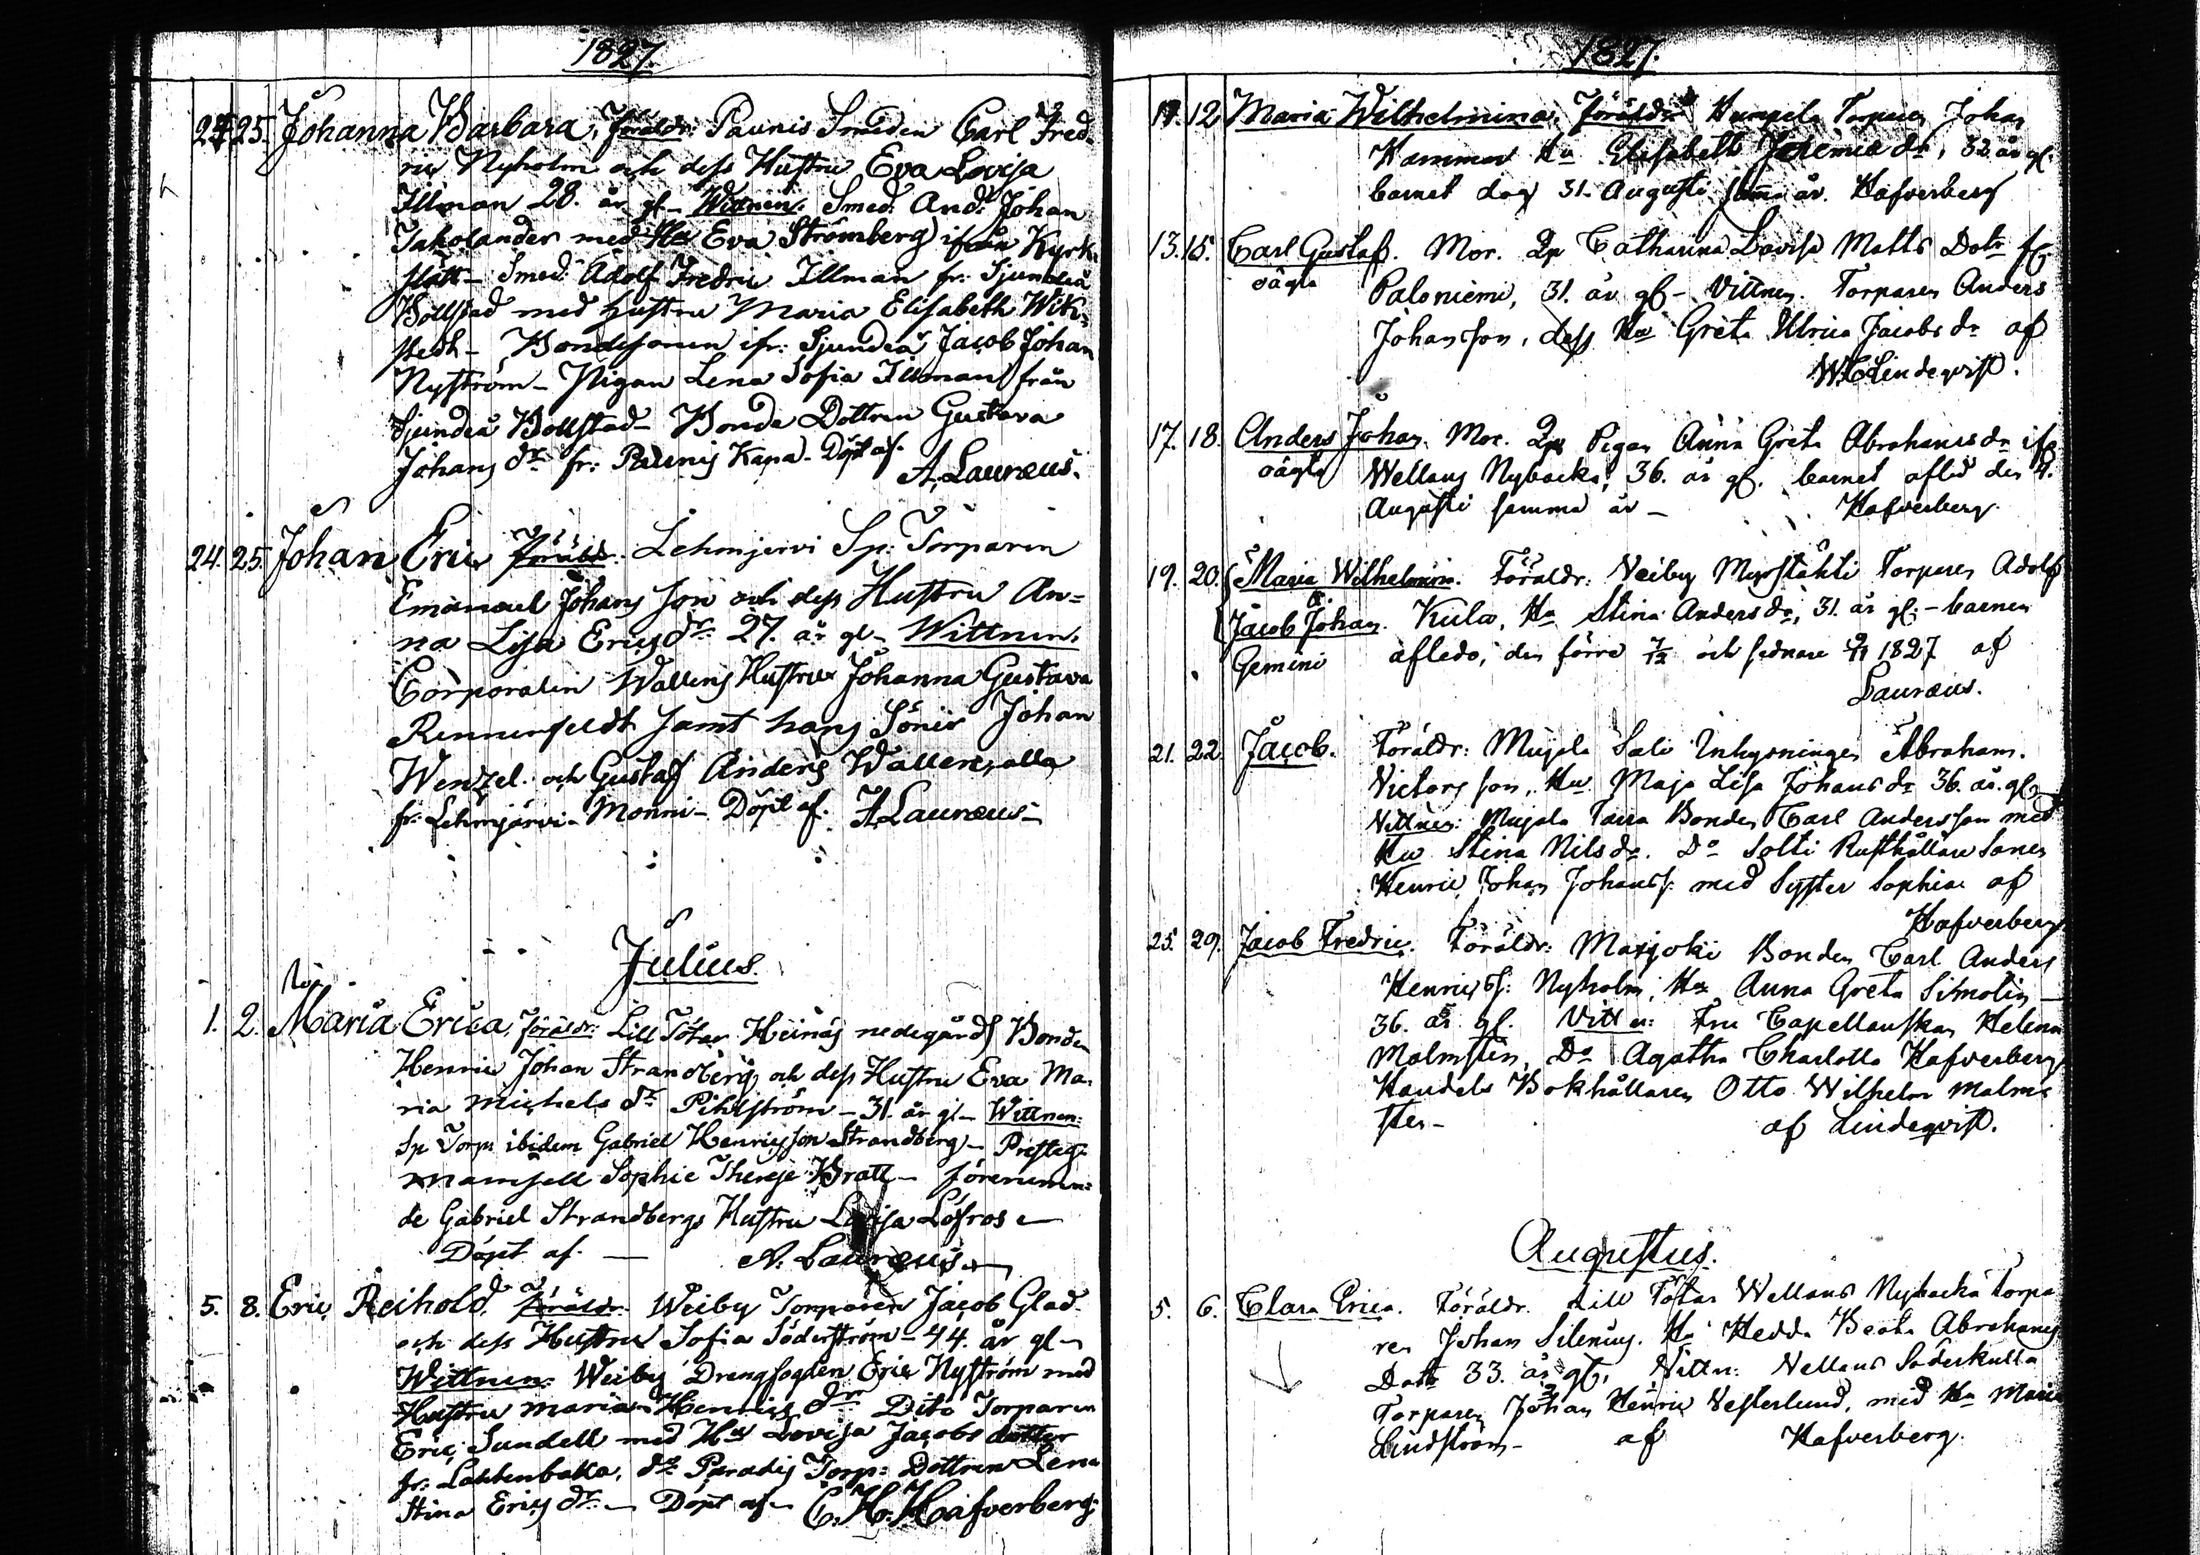 1827.
24 25. Johanna Barbara, Föräldr: Paunis Smeden Carl Fred-
ric Nyholm och dess Hustru Eva Lovisa
Illman 28. år gl- Wittnen. Smed: And: Johan
Takolander med Hu Eva Strömberg ifrån Kyrk-
slätt- Smed: Adolf Fredric Illman fr: Sjundeå
Böllstad med hustru Maria Elisabeth Wik-
stedt- Bondesonen ifr: Sjundeå Jacob Johan
Nyström- Pigan Lena Sofia Illman från
Sjundeå Böllstad- Bonde Dottren Gustava
Johans dr fr: Paunis Kapa- Döpt af.
A. Lauræus.
24. 25. Johan Eric Föräld: Lehmjervi Sp: Torparen
Emanuel Johans son och dess Hustru An=
na Lisa Erics dr 27. år gl- Wittnen.
Corporalen Wallens Hustru Johanna Gustava
Rennerfeldt samt hans Söner Johan
Wenzel och Gustaf Anders Wallen, alla
fr: Lehmjärvi- Monni- Döpt af. A Lauræus-
Julius.
1. 2. Maria Erica, Föräldr: Lill Tötar Heinäs nedegårds Bonden
Henric Johan Strandberg och dess Hustru Eva Ma-
ria Michels dr Pihlström- 31. år gl- Wittnen:
Sp Torp: ibidem Gabriel Henrics son Strandberg- Presteg:
Mamsell Sophie Therese Bratt- förenämn=
de Gabriel Strandbergs Hustru Lovisa Löfros-
Döpt af. — A. Lauræus-
5. 8. Eric Reihold. Föräldr: Weiby Torparen Jacob Glad
och dess Hustru Sofia Söderström- 44. år gl-
Wittnen: Weiby Drengfogden Eric Nyström med
Hustru Maria Henrics dr Dito Torparen
Eric Sundell med Hu Lovisa Jacobs dotter
fr: Lahtenbaka, do Paradis Torp: Dottren Lena
Stina Erics dr- Döpt af- C. H. Hafverberg.
1827.
11. 12 Maria Wilhelmina. Föräldr Torparen Johan
Hammar Hu Elisabeth Jeremiæ dr, 32 år gl.
barnet dog 31. Augusti samma år. Hafverberg
13. 15. Carl Gustaf. Mor. Qp Catharina Lovisa Matts Dotr fr
oägta Paloniemi, 31. år gl- Vittnen. Torparen Anders
Johansson, dess Hu Greta Ulrica Jacobs dr af
Lindeqvist.
17. 18. Anders Johan. Mor. Qp Pigan Anna Greta Abrahams dr ifr
oägta Wellans Nybacka, 36. år gl. barnet afled den 4.
Augusti samma år- Hafverberg
19. 20. Maria Wilhelmina. Föräldr: Veiby Torparen Adolf
Jacob Johan. Kula, Hu Stina Anders dr, 31. år gl:- barnen
Gemini afledo, den förre 7/12 och sednare 1827 af
Lauræus.
21. 22 Jacob. Föräldr: Mujala Salo Inhysningen Abraham
Victors son, Hu Maja Lisa Johans dr 36. år. gl-
Vittnen: Mujala Bonden Carl Andersson med
Hu Stina Nils dr. Do Solti Rusthållare Sonen
Henric Johan Johanss: med Syster Sophia af
Hafverberg
25. 29. Jacob Fredric. Föräldr: Marjoki Bonden Carl Anders
Henricss: Nyholm, Hu Anna Greta Simolin-
36. år gl. Vittn: Fru Capellanskan Helena
Malmstén, Do Agatha Charlotta Hafverberg
Handels Bokhållaren Otto Wilhelm Malms
ten- af Lindeqvist.
Augustus.
5. 6. Clara Erica. Föräldr. Lill Tötar Wellans Nybacka Torpa
ren Johan Silenius. Hu Hedda Beata Abrahams
Dotr 33. år gl, Vittn: Vellans Söderkulla
Torparen Johan Henric Vesterlund, med Hu Maria
Lindström- af Hafverberg.